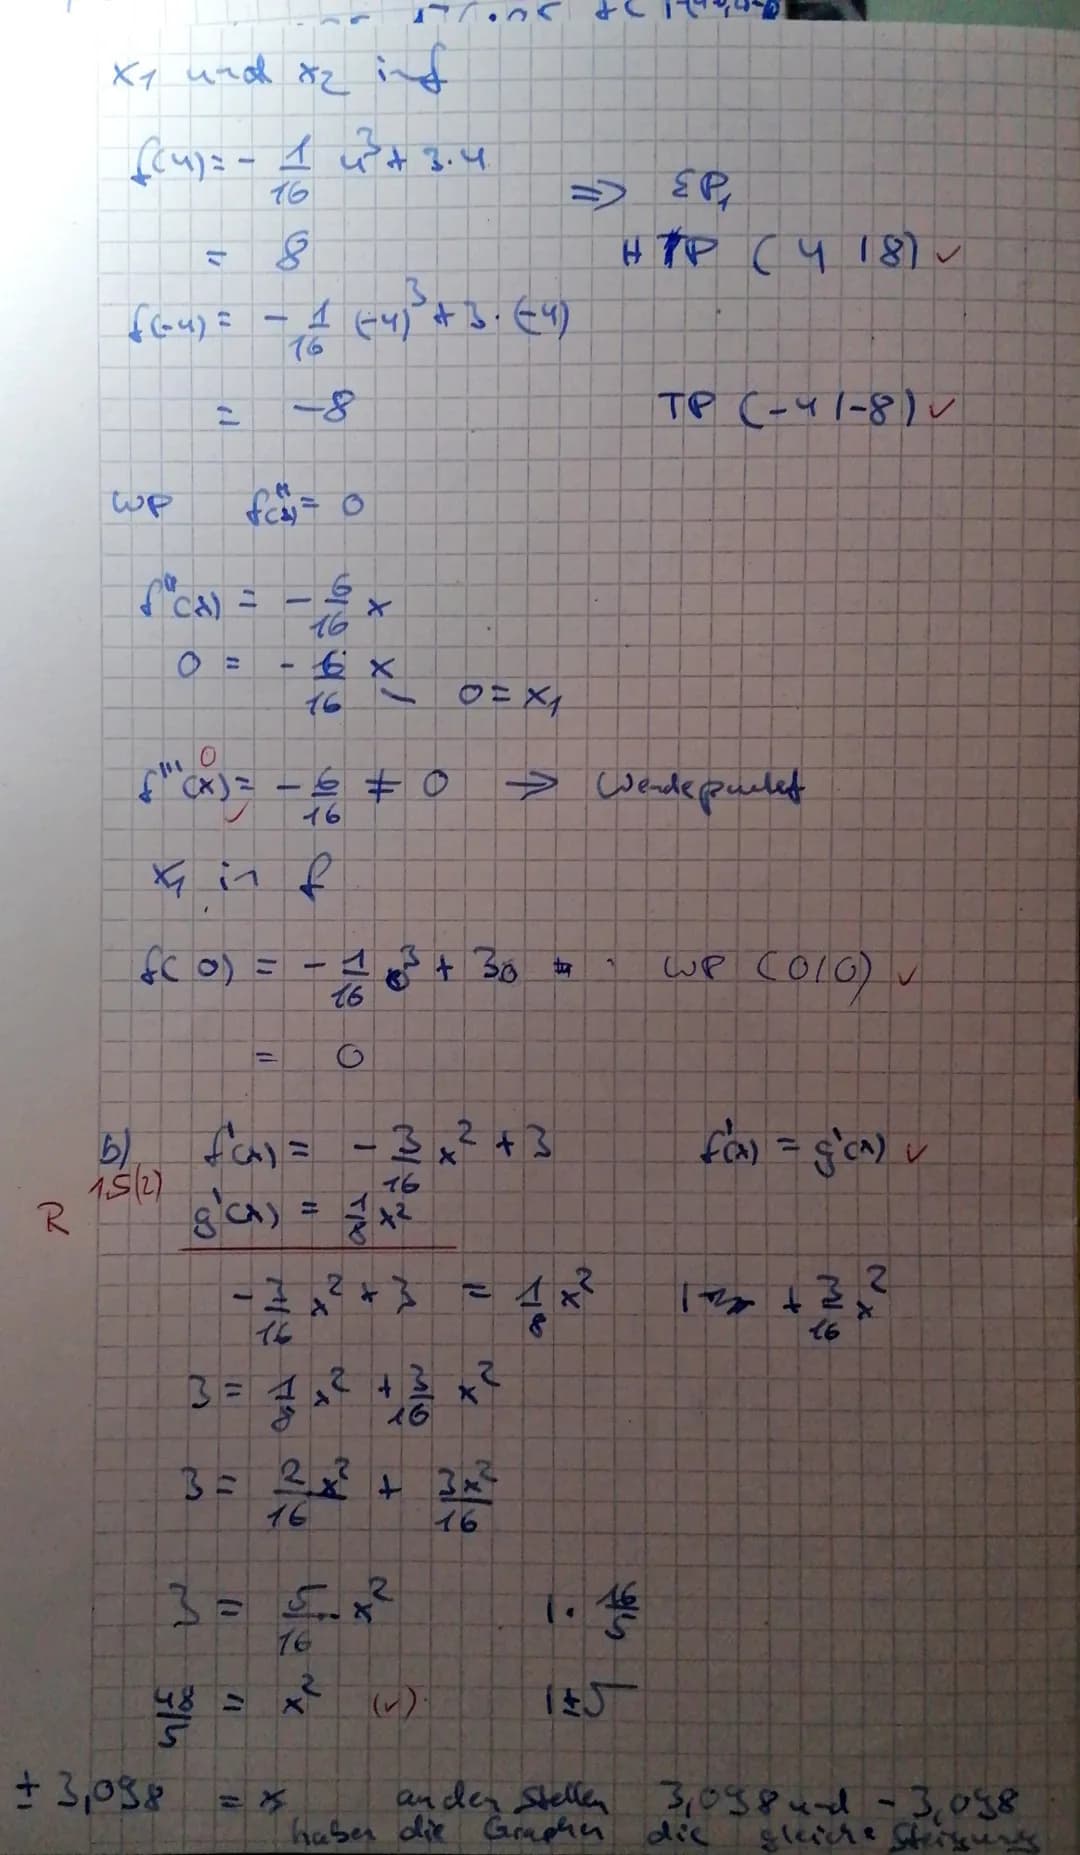 x₁ und x₂ in f
f(4) = - 1/16 4³ + 3·4
⇒ EP₁
= 8 HP (4 | 8) ✓
f(-4) = - 1/16 (-4)³ + 3·(-4)
= -8 TP (-4 | -8) ✓
WP f''(x) = 0
f''(x) = - 6/16 x
0 = - 6/16 x – 0 = x₁
0
f'''(x) = - 6/16 ≠ 0 ⇒ Wendepunkt
✓
x₁ in f
f(0) = - 1/16 0³ + 3·0 WP (0|0) ✓
= 0
b) f'(x) = - 3/16 x² + 3 f'(x) = g'(x) ✓
1,5(2)
R g'(x) = 1/8 x²
- 3/16 x² + 3 = 1/8 x² | + 3/16 x²
3 = 1/8 x² + 3/16 x²
3 = 2/16 x² + 3x²/16
3 = 5/16 · x² | · 16/5
48/5 = x² (✓) | ±√
± 3,098 = x an den Stellen 3,098 und - 3,098
haben die Graphen die gleiche Steigung